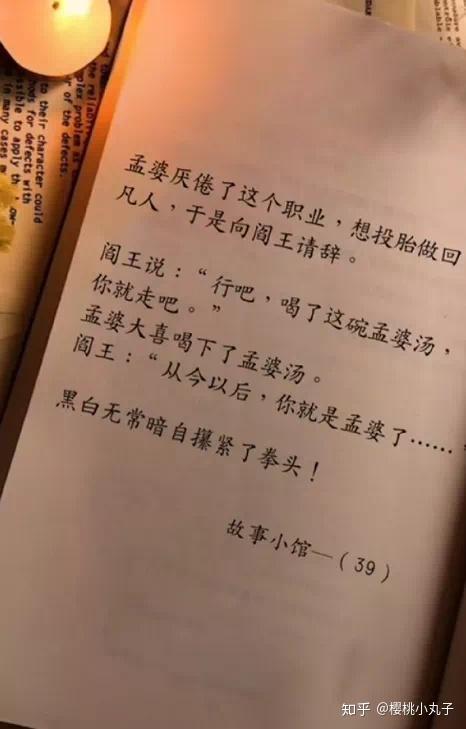 to their character could
hods for defects with
ssible to apply th
in many cases
the reliabil
mplex problem as
r of the defects.
孟婆厌倦了这个职业，想投胎做回
凡人，于是向阎王请辞。
阎王说：“行吧，喝了这碗孟婆汤，
你就走吧。”
孟婆大喜喝下了孟婆汤。
阎王：“从今以后，你就是孟婆了……
黑白无常暗自攥紧了拳头！
故事小馆—（39）
知乎 @樱桃小丸子